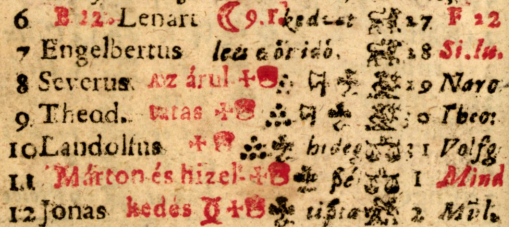 6 B 22. Lenart 9. r kedvet 27 F 22
7 Engelbertus leſs eöridö. 28 Si. Iu.
8 Severus Az árul 29 Narc
9 Theod. tatas 30 Theo:
10 Landolſus hideg 31 Volfg
11 Márton és hizel 1 Mind
12 Jonas kedes 2 Mül.